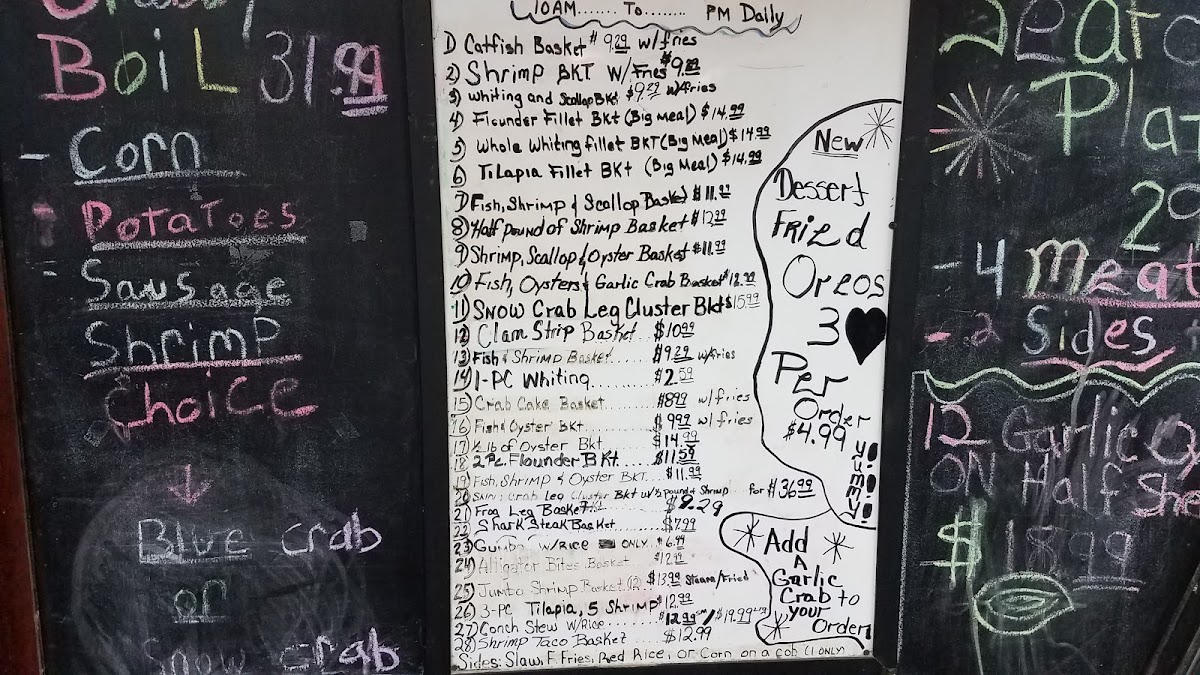 BoiL 31.99
- Corn
- Potatoes
- Sausage
Shrimp
Choice
Blue crab
or
Snow crab
10AM....... To........ PM Daily
1) Catfish Basket $9.29 w/fries
2) Shrimp BKT w/Fries $9.89
3) Whiting and Scallop BKt $9.29 w/fries
4) Flounder Fillet BKt (Big Meal) $14.99
5) Whole Whiting fillet BKT (Big Meal) $14.99
6) Tilapia Fillet BKt (Big Meal) $14.99
7) Fish, Shrimp & Scallop Basket $11.99
8) Half Pound of Shrimp Basket $12.99
9) Shrimp, Scallop & Oyster Basket $11.99
10) Fish, Oysters & Garlic Crab Basket $12.99
11) Snow Crab Leg Cluster Bkt $15.99
12) Clam Strip Basket.. $10.99
13) Fish & Shrimp Basket.... $9.29 w/fries
14) 1-PC Whiting......... $2.59
15) Crab Cake Basket....... $8.99 w/fries
16) Fish & Oyster BKT $9.99 w/fries
17) ½ lb of Oyster Bkt $14.99
18 2 Pc. Flounder BKt.... $11.59
19) Fish, Shrimp & Oyster BKT.... $11.99
20 Snow Crab Leg Cluster Bkt w/½ pound of Shrimp for $36.99
21) Frog Leg Basket $9.29
22 Shark Steak Basket....... $7.99
23) Gumbo w/Rice ONLY.. $6.99
24) Alligator Bites Basket $12.99
25) Jumbo Shrimp Basket (12) $13.99 Steam/Fried
26) 3-PC Tilapia, 5 Shrimp $12.99
27) Conch Stew W/Rice $12.99 sm/$19.99 Lrg
28) Shrimp Taco Basket $12.99
Sides: Slaw, F. Fries, Red Rice, or Corn on a cob (1 ONLY)
New
Dessert
Fried
Oreos
3
Per
Order
$4.99
Yummy!!
Add
A
Garlic
Crab to
your
Order
- 4 Meat
- 2 Sides
12 Garlic
ON Half
$18.99